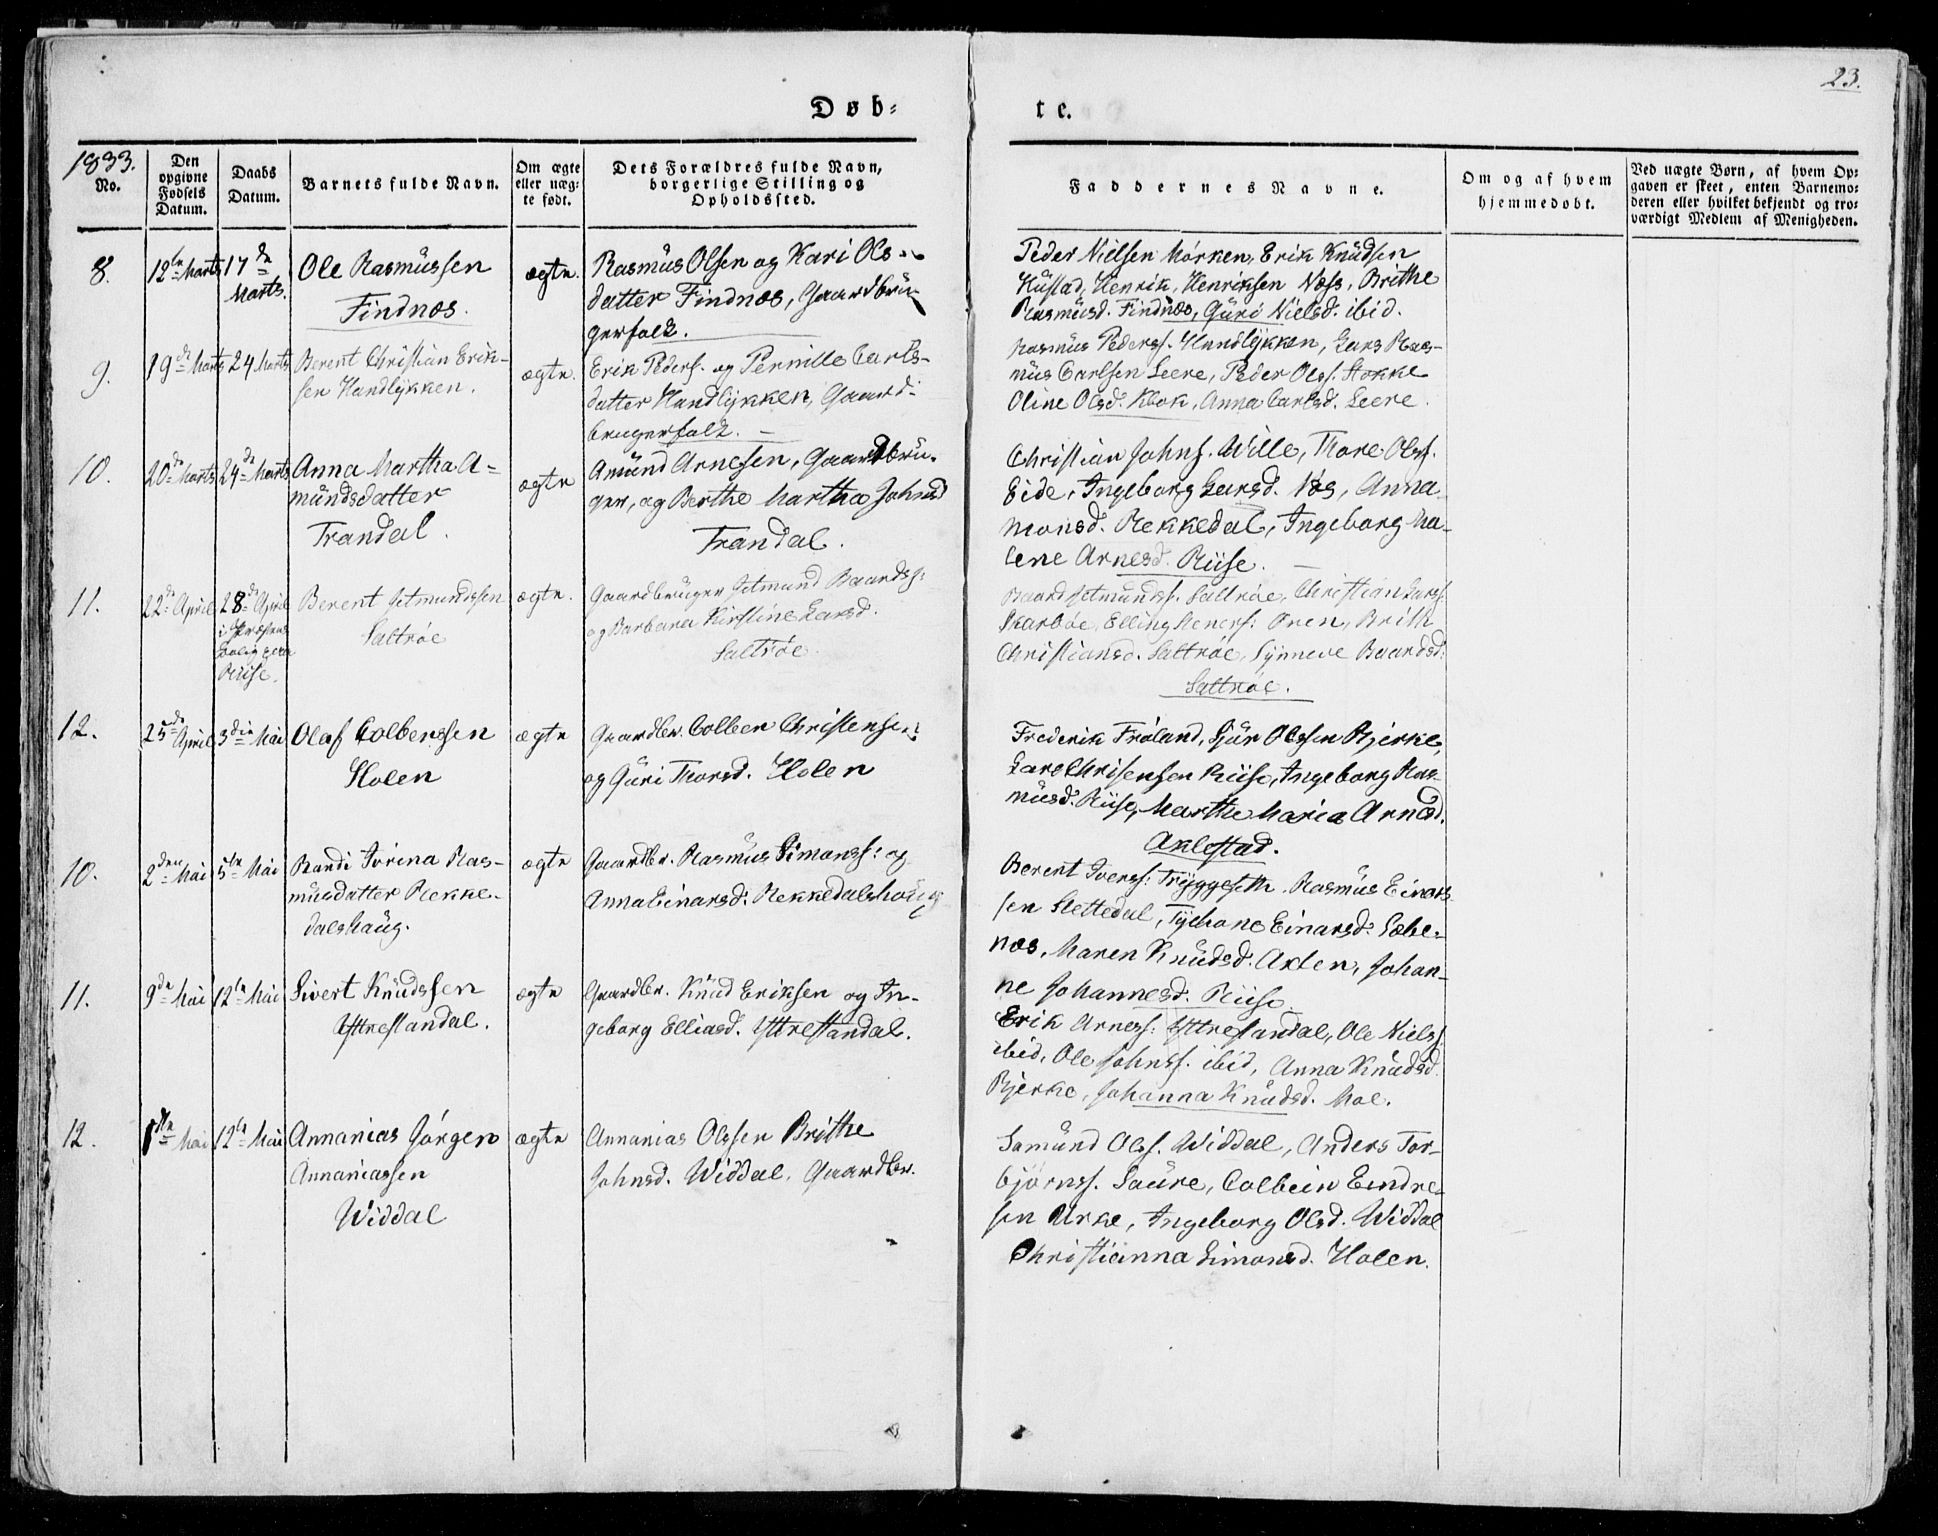 23.
Døb-
te.
1833.
No.
Den opgivne Fødsels Datum.
Daabs Datum.
Barnets fulde Navn.
Om ægte eller uægte født.
Dets Forældres fulde Navn, borgerlige Stilling og Opholdssted.
Faddernes Navne.
Om og af hvem hjemmedøbt.
Ved uægte Børn, af hvem Opgaven er skeet, enten Barnemoderen eller hvilket bekjendt og troværdigt Medlem af Menigheden.
8.
12te Marts
17de Marts.
Ole Rasmussen
Findnæs.
ægte
Rasmus Olsen og Kari Ols-
datter Findnæs, Gaardbru-
gerfolk.
Peder Nielsen Mørken, Erik Knudsen
Hustad, Henrik Henriksen Næss, Brithe
Rasmusd. Findnæs, Guri Nielsd. ibid.
9.
19de Marts
24 Marts
Berent Christian Erik-
sen Hundlykken.
ægte.
Erik Peders. og Pernille Carls-
datter Hundlykken, Gaard-
brugerfolk. –
Rasmus Pederss. Hundlykken, Lars Ras-
mus Carlsen Leere, Peder Olss. Stokke
Oline Olsd. Klok, Anna Carlsd. Leere.
10.
20de Marts
24de Marts
Anna Martha A-
mundsdatter
Trandal.
ægte
Amund Arnesen, Gaardbru-
ger, og Berthe Martha Johnsd
Trandal.
Christian Johns. Wille, Thore Olss.
Eide, Ingeborg Larsd. Aas, Anna
Monsd. Rekkedal, Ingeborg Ma-
lene Arnesd. Riise. –
11.
22de April
28de April
i Præstens
bolig paa
Riise.
Berent Jetmundssen
Saltrøe
ægte.
Gaardbruger Jetmund Baardss:
og Barbara Kirstine Larsd.
Saltrøe.
Baard Jetmundss. Saltrøe, Christian Larss.
Skarbøe, Elling Steners: Oren, Brith
Christiansd. Saltrøe, Synneve Baardsd:
Saltrøe.
12.
25de April
3die Mai
Olaf Colbenssen
Holen
ægte
Gaardbr. Colben Christensen
og Guri Thorsd. Holen
Frederik Frøland, Sjur Olssen Bjerke,
Lars Chrisensen Riise, Ingeborg Ras-
musd. Riise, Marthe Maria Arnesd.
Aklestad.
10.
2den Mai
5te Mai
Randi Iverina Ras-
musdatter Rekke-
dalshaug.
ægte
Gaardbr. Rasmus Simonss: og
Anna Einarsd: Rekkedalshoug
Berent Iverss: Tryggeseth. Rasmus Einar-
sen Slettedal, Tychone Einarsd. Sæbe-
næs, Maren Knudsd. Axlen, Johan-
ne Johannesd. Riise
11.
9de Mai
12te Mai
Sivert Knudssen
Yttrestandal.
ægte
Gaardbr. Knud Eriksen og In-
geborg Elliasd. Yttrestandal.
Erik Arness: Yttrestandal, Ole Nielss
ibid, Ole Johnss. ibid, Anna Knudsd
Bjerke, Johanna Knudsd. Moe.
12.
Mai
12te Mai
Annanias Jørgen
Annaniassen
Widdal
ægte
Annanias Olssen Brithe
Johnsd. Widdal, Gaardbr.
Samund Olss. Widdal, Anders Tor-
bjørnss. Saure, Colbein Eindre-
sen Urke, Ingeborg Olsd. Widdal
Christianna Simonsd. Holen.